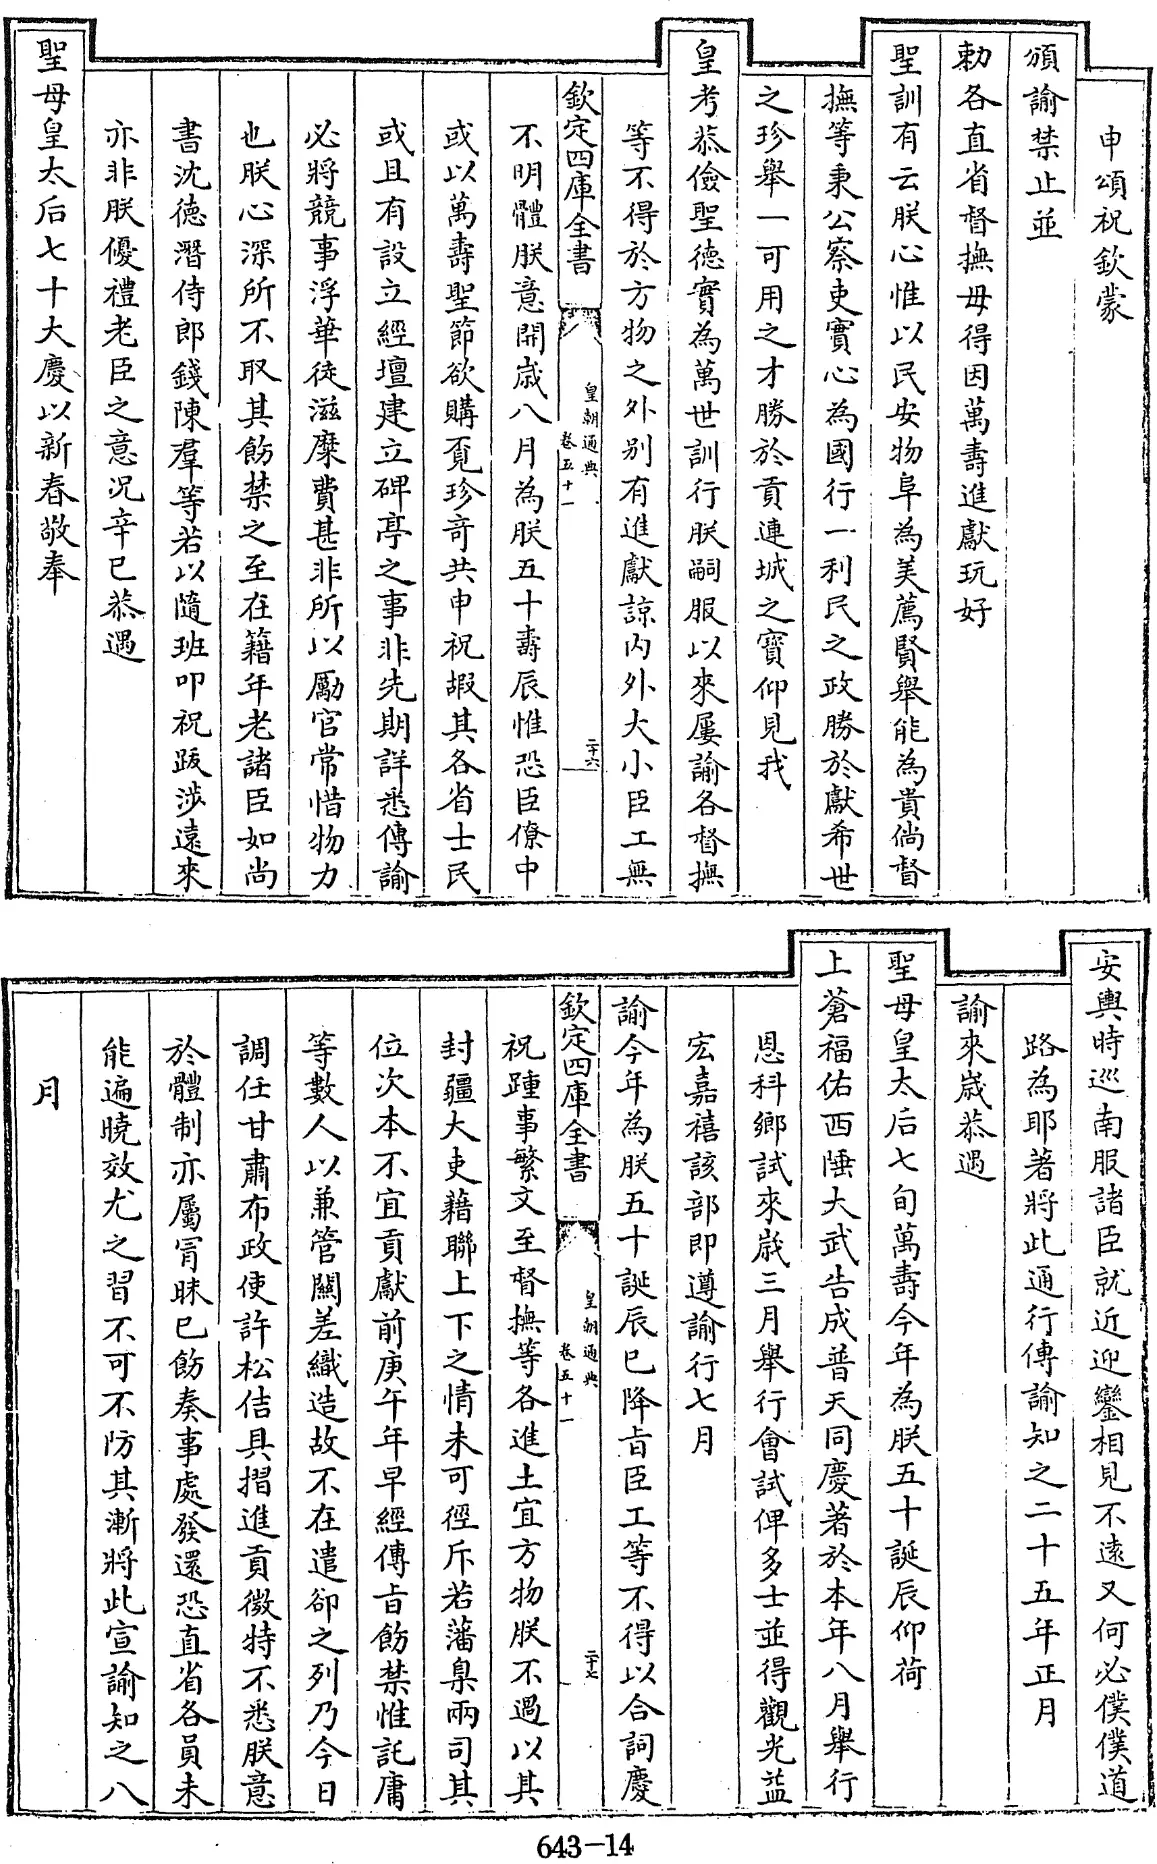 申頌祝欽蒙
頒諭禁止並
勅各直省督撫毋得因萬壽進獻玩好
聖訓有云朕心惟以民安物阜為美薦賢舉能為貴倘督
撫等秉公察吏實心為國行一利民之政勝於獻希世
之珍舉一可用之才勝於貢連城之寳仰見我
皇考恭儉聖德實為萬世訓行朕嗣服以來屢諭各督撫
等不得於方物之外别有進獻諒内外大小臣工無
欽定四庫全書
皇朝通典
卷五十一
二十六
不明體朕意開歲八月為朕五十壽辰惟恐臣僚中
或以萬壽聖節欲購覔珍竒共申祝嘏其各省士民
或且有設立經壇建立碑亭之事非先期詳悉傳諭
必將競事浮華徒滋糜費甚非所以勵官常惜物力
也朕心深所不取其飭禁之至在籍年老諸臣如尚
書沈德潛侍郎錢陳羣等若以隨班叩祝跋涉遠來
亦非朕優禮老臣之意况辛巳恭遇
聖母皇太后七十大慶以新春敬奉
安輿時巡南服諸臣就近迎鑾相見不遠又何必僕僕道
路為耶著將此通行傳諭知之二十五年正月
諭來歲恭遇
聖母皇太后七旬萬壽今年為朕五十誕辰仰荷
上蒼福佑西陲大武告成普天同慶著於本年八月舉行
恩科鄉試來歲三月舉行會試俾多士並得觀光益
宏嘉禧該部即遵諭行七月
諭今年為朕五十誕辰已降旨臣工等不得以合詞慶
欽定四庫全書
皇朝通典
卷五十一
二十七
祝踵事繁文至督撫等各進土宜方物朕不過以其
封疆大吏藉聯上下之情未可徑斥若藩臬兩司其
位次本不宜貢獻前庚午年早經傳旨飭禁惟託庸
等數人以兼管關差織造故不在遣卻之列乃今日
調任甘肅布政使許松佶具摺進貢微特不悉朕意
於體制亦屬冐昧已飭奏事處發還恐直省各員未
能遍曉效尤之習不可不防其漸將此宣諭知之八
月
643-14